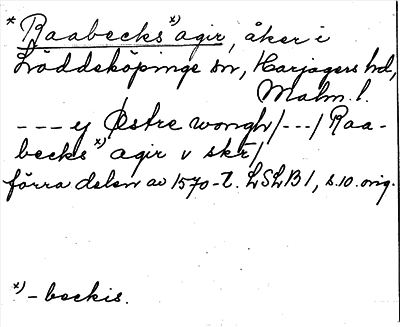 * Raabecks *) agir, åker i
Löddeköpinge sn, Harjagers hd,
Malm. l.
--- ÿ Østre wongh/---/ Raa-
becks *) agir v skr̃/
förra delen av 1570-t. LSLB 1, s. 10. orig.
*) -beckis.